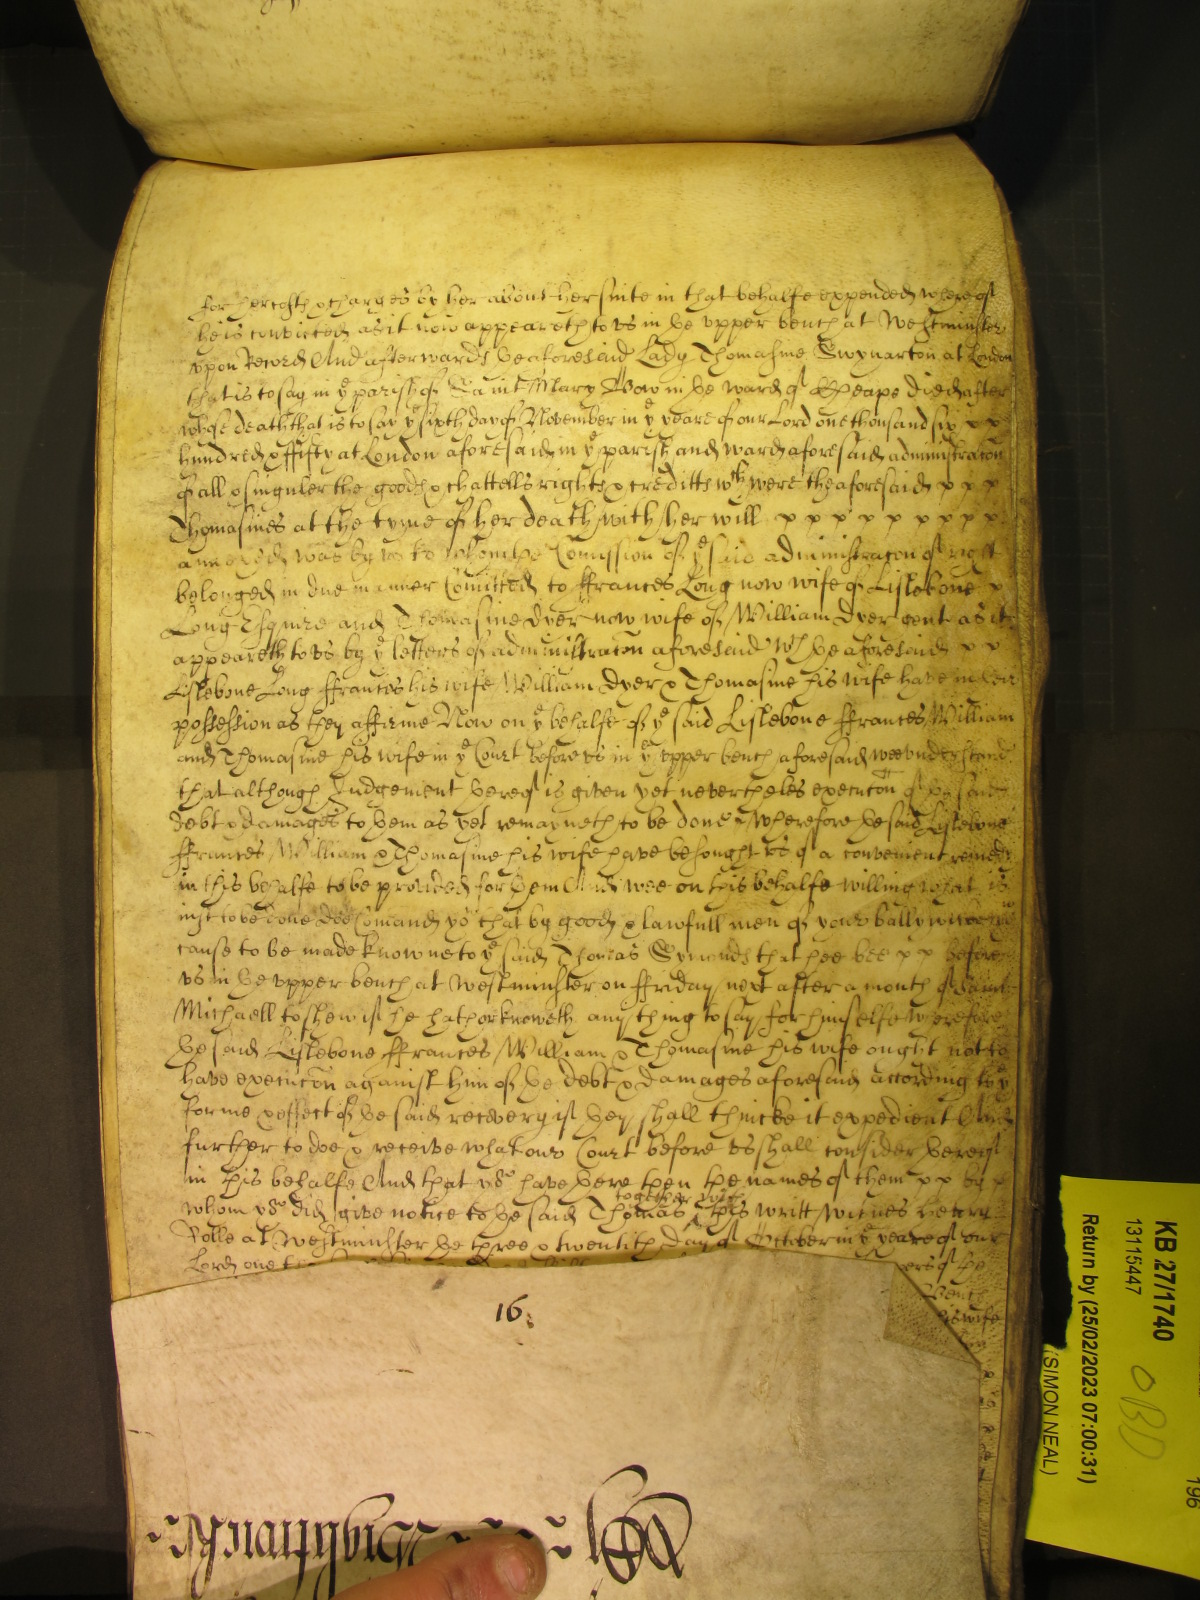 for her costs & charges by her about her suite in that behalfe expended whereof
he is convicted as it now appeareth to us in the upper bench at Westminster
upon Record And afterwards the aforesaid Lady Thomasine Swynarton at London
that is to say in ye parish of Saint Mary Bow in the ward of Cheape died after
whose death that is to say ye sixth day of November in ye yeare of our Lord one thousand six x x
hundred & fifty at London aforesaid in ye parish and ward aforesaid administracon
of all & singuler the goods & chattells rights & creditts wch were the aforesaid x x x
Thomasines at the tyme of her death with her will x x x x x x x x
annexed was by us to whom the Comission of ye said administracon of right
belonged in due manner Comitted to ffrances Long now wife of Lislebone x
Long Esquire and Thomasine dyer now wife of William dyer gent as it
appeareth to us by ye letters of administracon aforesaid wch the aforesaid x x
Lislebone Long ffrances his wife William dyer & Thomasine his wife have in their
possession as they affirme Now on ye behalfe of ye said Lislebone ffrances William
and Thomasine his wife in ye Court before us in ye upper bench aforesaid wee understand
that although Judgement thereof is given yet neverthelesse execucon of the said
debt & damages to them as yet remayneth to be done Wherefore the said Lislebone
ffrances William & Thomasine his wife have besought us of a convenient remedy
in this behalfe to be provided for them And wee on this behalfe willing what is
just to be done doe Comand you that by good & lawfull men of your ballywicke
cause to be made knowne to ye said Thomas Symonds that hee bee x x before
us in the upper bench at Westminster on ffriday next after a month of Saint
Michaell to shew if he hath or knoweth any thing to say for himselfe wherefore
the said Lislebone ffrances William & Thomasine his wife ought not to
have execucon against him of the debt & damages aforesaid according to ye
forme & effect of the said recovery if they shall thincke it expedient And
further to doe & receive what our Court before us shall consider thereof
in this behalfe And that you have there then the names of them x x by x
whom you did give notice to the said Thomas together with this writt witnes Henry
Rolle at Westminster the three & twentith day of October in ye yeare of our
Lord one
of the
his wife
16
KB 27/1740
13115447
Return by (25/02/2023 07:00:31)
(SIMON NEAL)
OBD
196